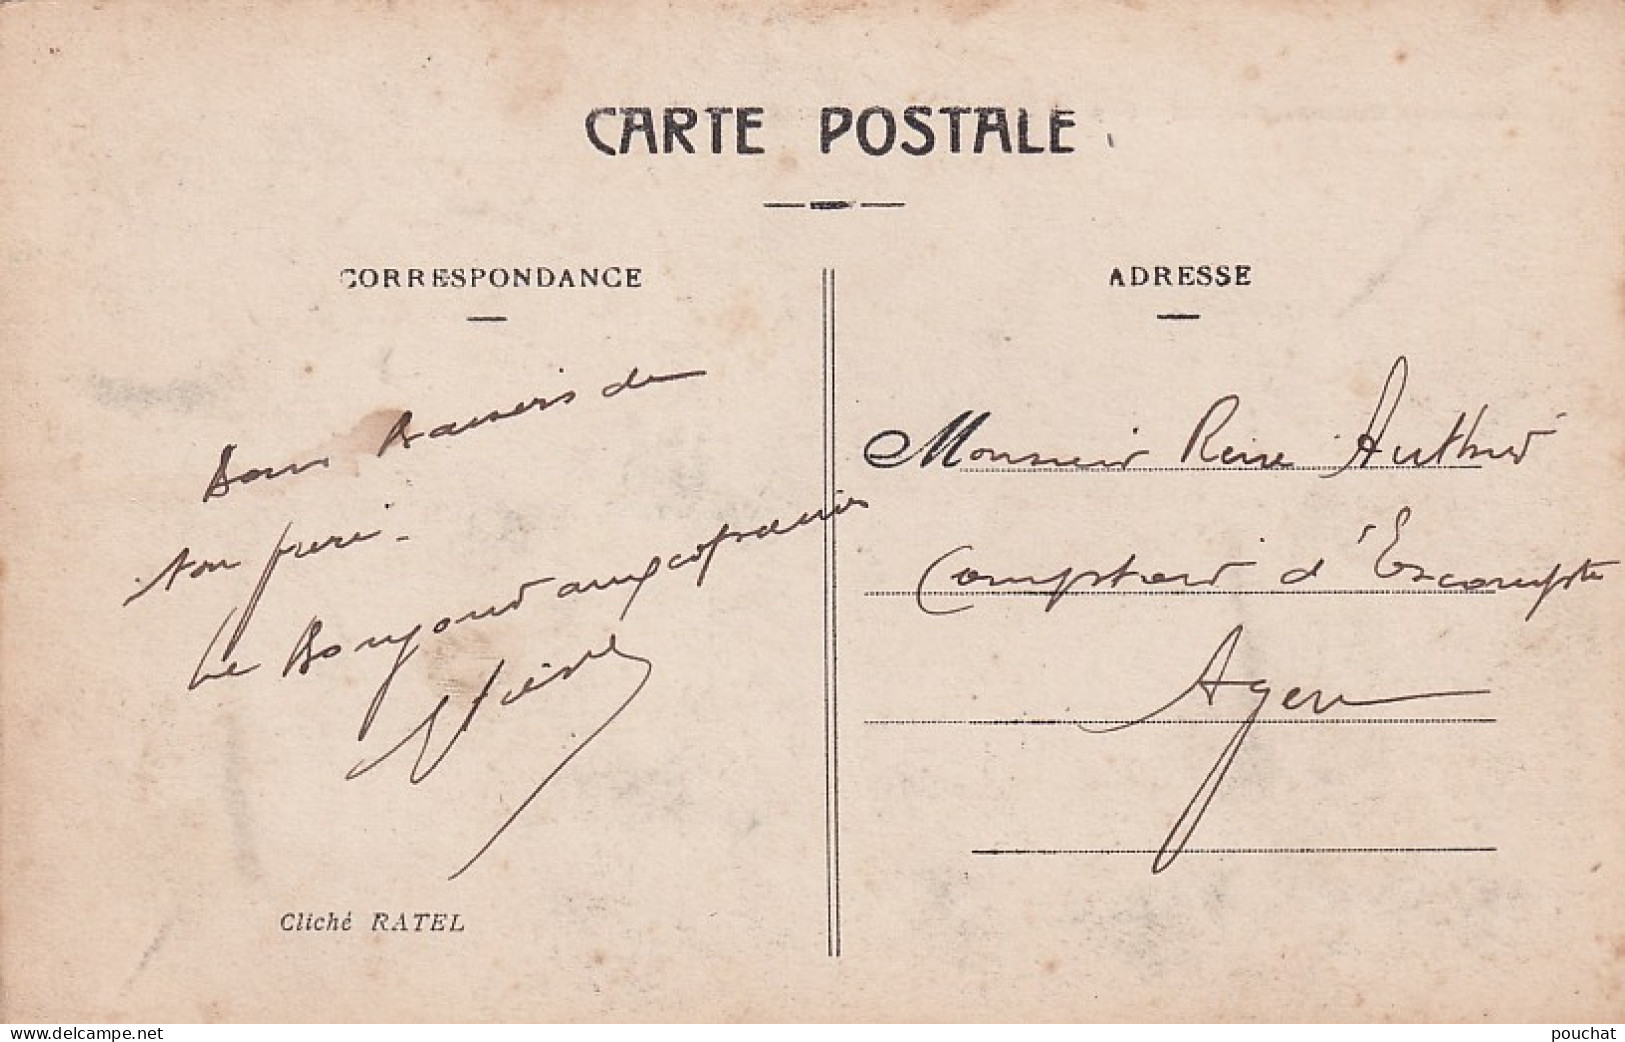 CARTE POSTALE
CORRESPONDANCE
Bons Baisers de
ton frere -
Le Bonjour aux copains
Cliché RATEL
ADRESSE
Monsieur Rene
Comptoir d'Escompte
Agen
www.delcampe.net
pouchat